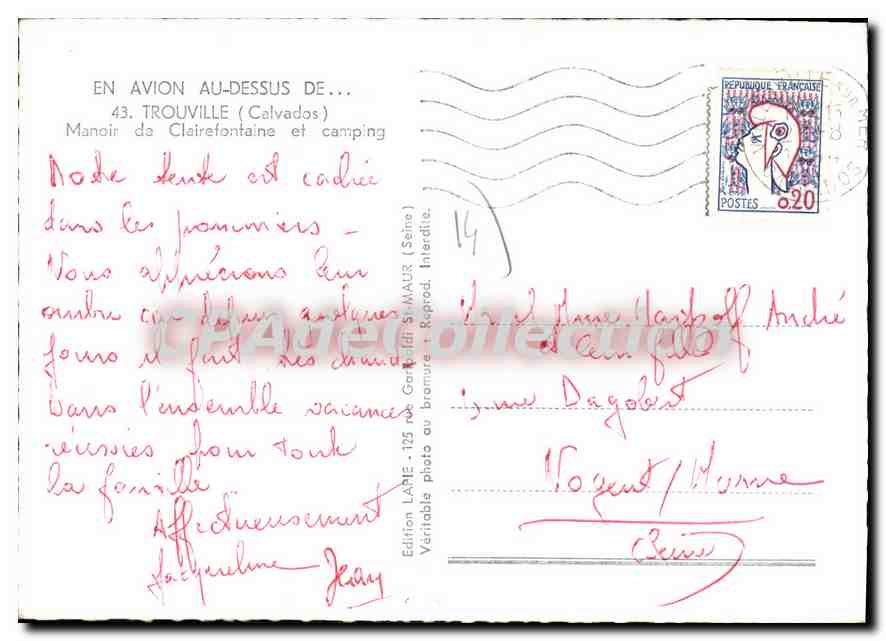 EN AVION AU-DESSUS DE...
43. TROUVILLE (Calvados)
Manoir de Clairefontaine et camping
Notre tente est cachée
dans les pommiers -
Nous apprécions leur
ombre car depuis quelques
jours il fait très chaud
Dans l'ensemble vacances
réussies pour toute
la famille
Affectueusement
Jacqueline Jean
Edition LAPIE - 125 rue Gariboldi St-MAUR (Seine)
Véritable photo au bromure : Reprod. Interdite.
14
REPUBLIQUE FRANÇAISE
POSTES 0,20
SUR MER
André
et leur fille
rue Dagobert
Nogent / Marne
(Seine)
CPAdeCollection